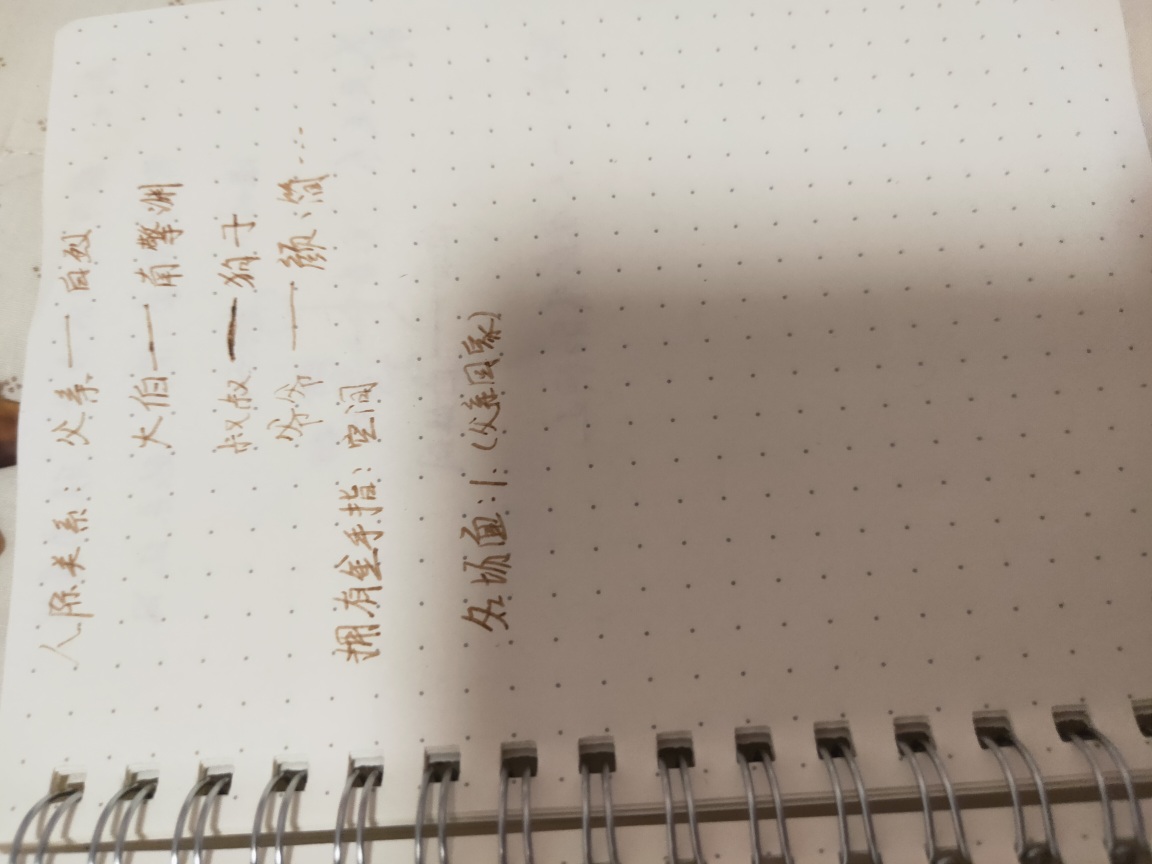 人际关系：父亲——白烈
大伯——南擎洲
叔叔——狗子
爷爷——颜、简…
拥有金手指：空间
名场面：1、（父亲回家）